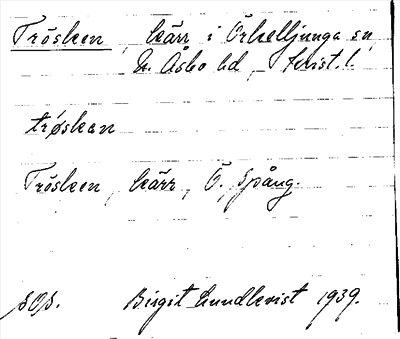 Trösken, kärr i Örkelljunga sn,
N. Åsbo hd, Krist. l.
trøskan
Trösken, kärr, Ö. Spång.
sOp. Birgit Lundkvist 1939.